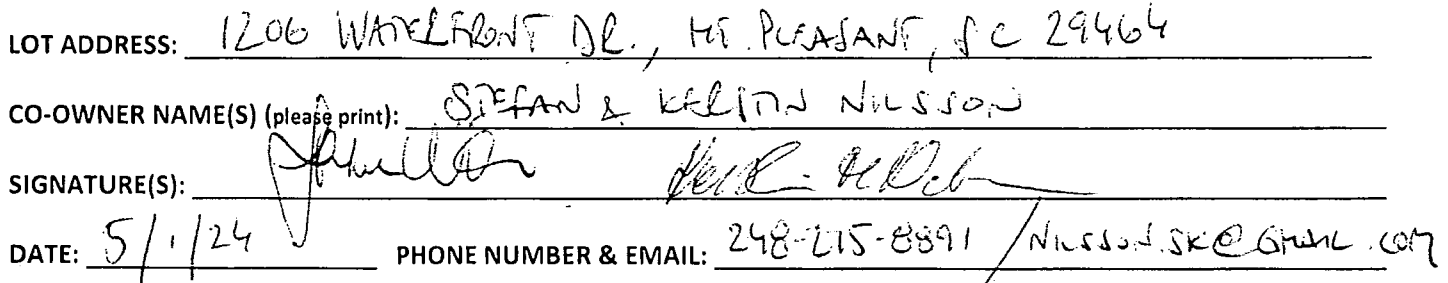 LOT ADDRESS: 1206 WATERFRONT DR., MT. PLEASANT, SC 29464
CO-OWNER NAME(S) (please print): STEFAN & KERSTIN NILSSON
SIGNATURE(S):
DATE: 5/1/24 PHONE NUMBER & EMAIL: 248-215-8891 / NILSSON.SK@GMAIL.COM